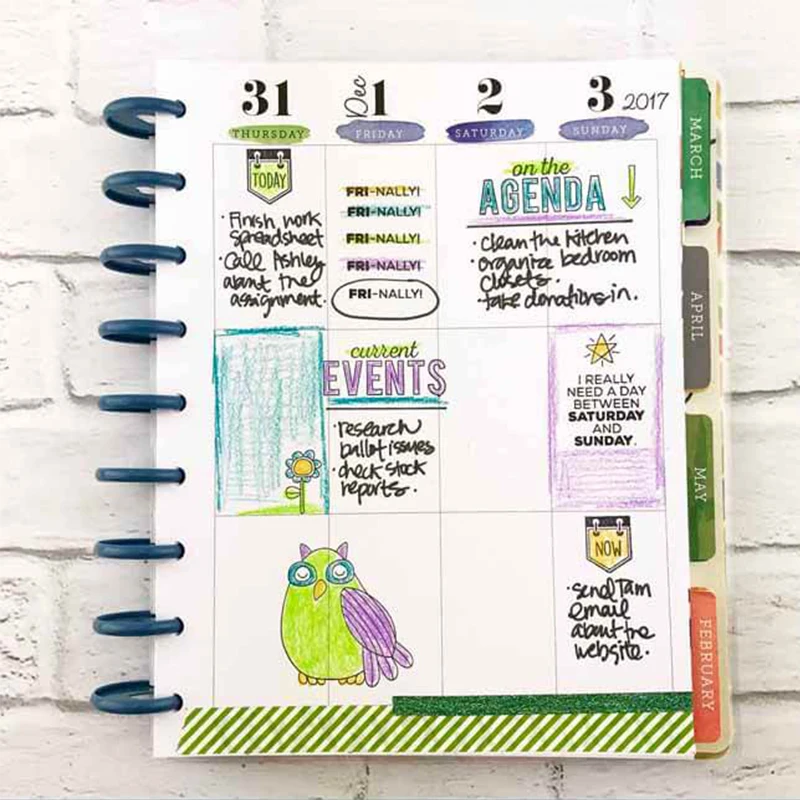 31
THURSDAY
Dec
1
FRIDAY
2
SATURDAY
3
2017
SUNDAY
TODAY
· Finish work
spreadsheet
· Call Ashley
about the
assignment.
FRI-NALLY!
FRI-NALLY!
FRI-NALLY!
FRI-NALLY!
FRI-NALLY!
on the
AGENDA
· clean the kitchen
· organize bedroom
closets.
· take donations in.
current
EVENTS
· research
ballot issues
· check stock
reports.
I REALLY
NEED A DAY
BETWEEN
SATURDAY
AND
SUNDAY.
NOW
· send Tam
email
about the
website.
MARCH
APRIL
MAY
FEBRUARY